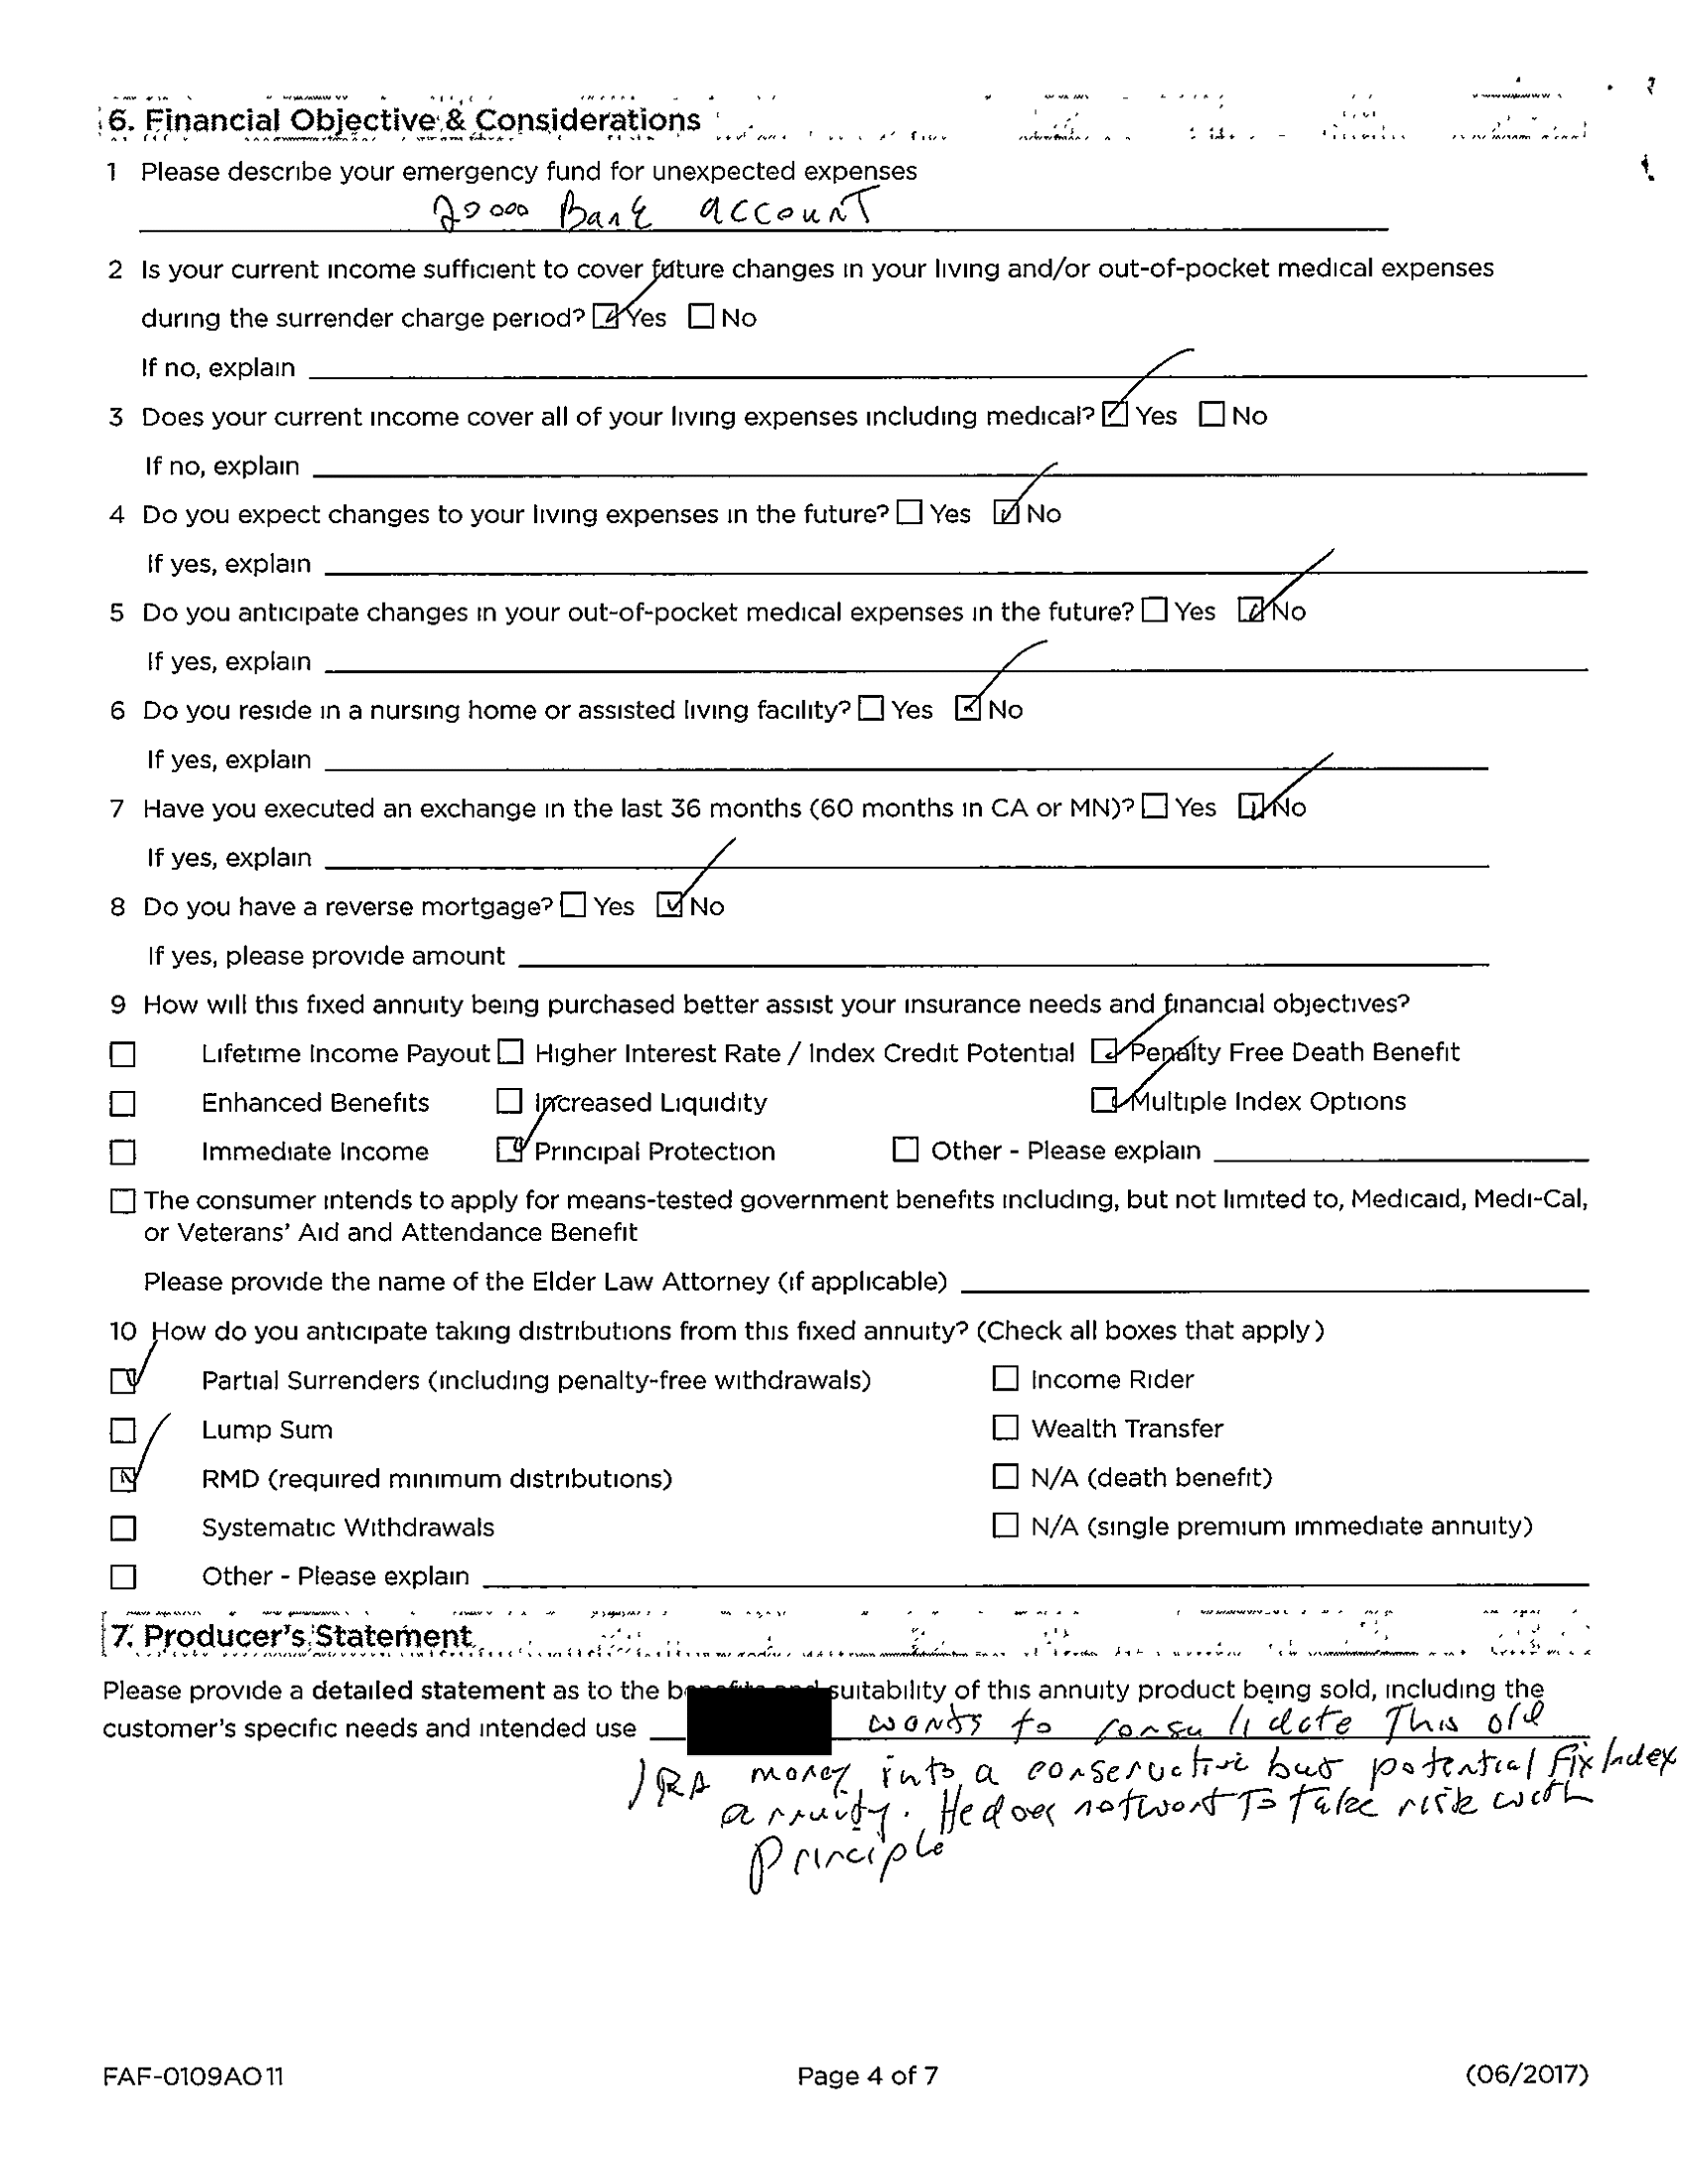 6. Financial Objective & Considerations
1 Please describe your emergency fund for unexpected expenses
20000 Bank account
2 Is your current income sufficient to cover future changes in your living and/or out-of-pocket medical expenses
during the surrender charge period? Yes No
If no, explain
3 Does your current income cover all of your living expenses including medical? Yes No
If no, explain
4 Do you expect changes to your living expenses in the future? Yes No
If yes, explain
5 Do you anticipate changes in your out-of-pocket medical expenses in the future? Yes No
If yes, explain
6 Do you reside in a nursing home or assisted living facility? Yes No
If yes, explain
7 Have you executed an exchange in the last 36 months (60 months in CA or MN)? Yes No
If yes, explain
8 Do you have a reverse mortgage? Yes No
If yes, please provide amount
9 How will this fixed annuity being purchased better assist your insurance needs and financial objectives?
Lifetime Income Payout Higher Interest Rate / Index Credit Potential Penalty Free Death Benefit
Enhanced Benefits Increased Liquidity Multiple Index Options
Immediate Income Principal Protection Other - Please explain
The consumer intends to apply for means-tested government benefits including, but not limited to, Medicaid, Medi-Cal,
or Veterans' Aid and Attendance Benefit
Please provide the name of the Elder Law Attorney (if applicable)
10 How do you anticipate taking distributions from this fixed annuity? (Check all boxes that apply)
Partial Surrenders (including penalty-free withdrawals) Income Rider
Lump Sum Wealth Transfer
RMD (required minimum distributions) N/A (death benefit)
Systematic Withdrawals N/A (single premium immediate annuity)
Other - Please explain
7. Producer's Statement
Please provide a detailed statement as to the benefits and suitability of this annuity product being sold, including the
customer's specific needs and intended use wants to consulidate This old
IRA money into a conservative but potential Fix Index
annuity. He does not want To take risk with
Principle
FAF-0109AO 11 Page 4 of 7 (06/2017)